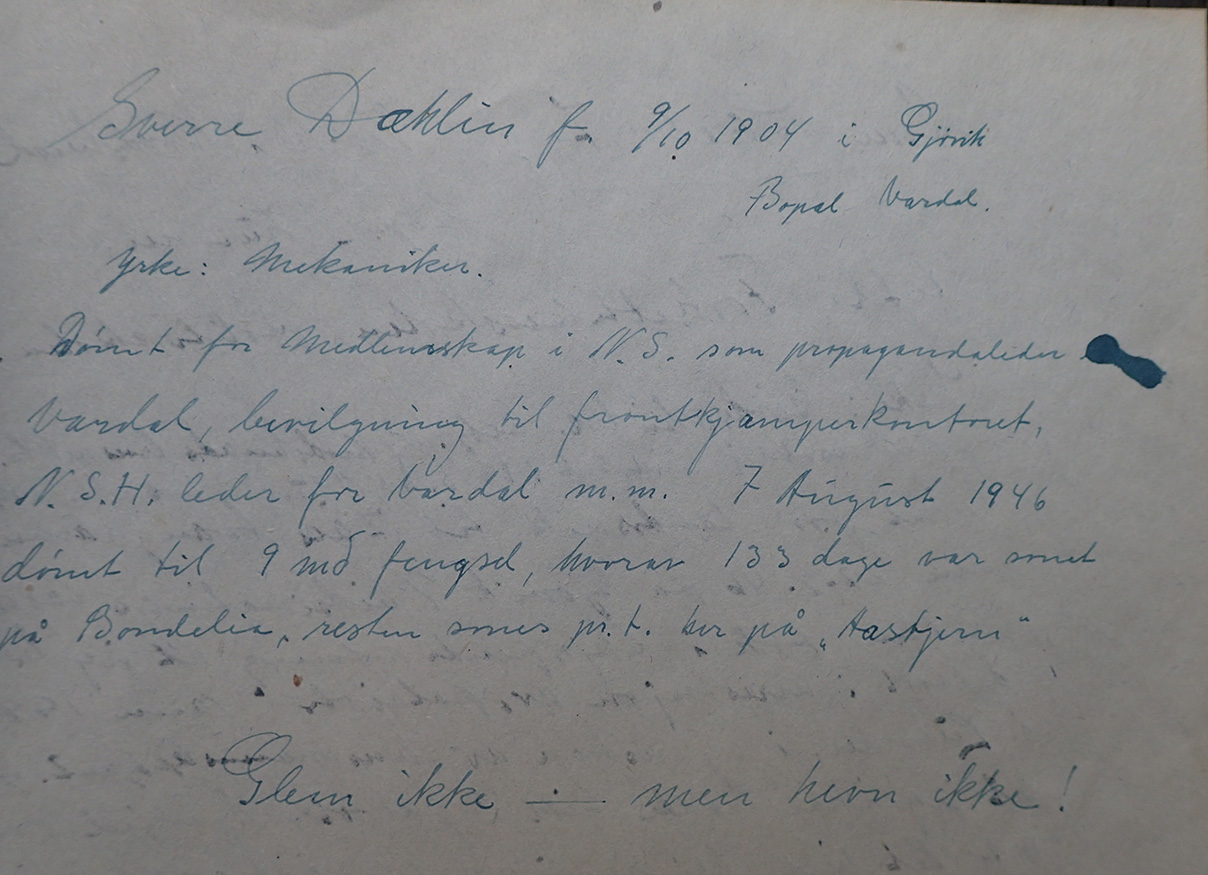 Sverre Dæhlin f. 9/10 1904 i Gjøvik
Bopæl Vardal.
Yrke: Mekaniker.
Dømt for Medlemskap i N.S. som propagandaleder
Vardal, bevilgning til frontkjæmperkontoret,
N.S.H. leder for Vardal m.m. 7 August 1946
dømt til 9 md fengsel, hvorav 133 dage var sonet
på Bondelia, resten sones pr.t. her på „Hastjern“
Glem ikke — men hevn ikke!